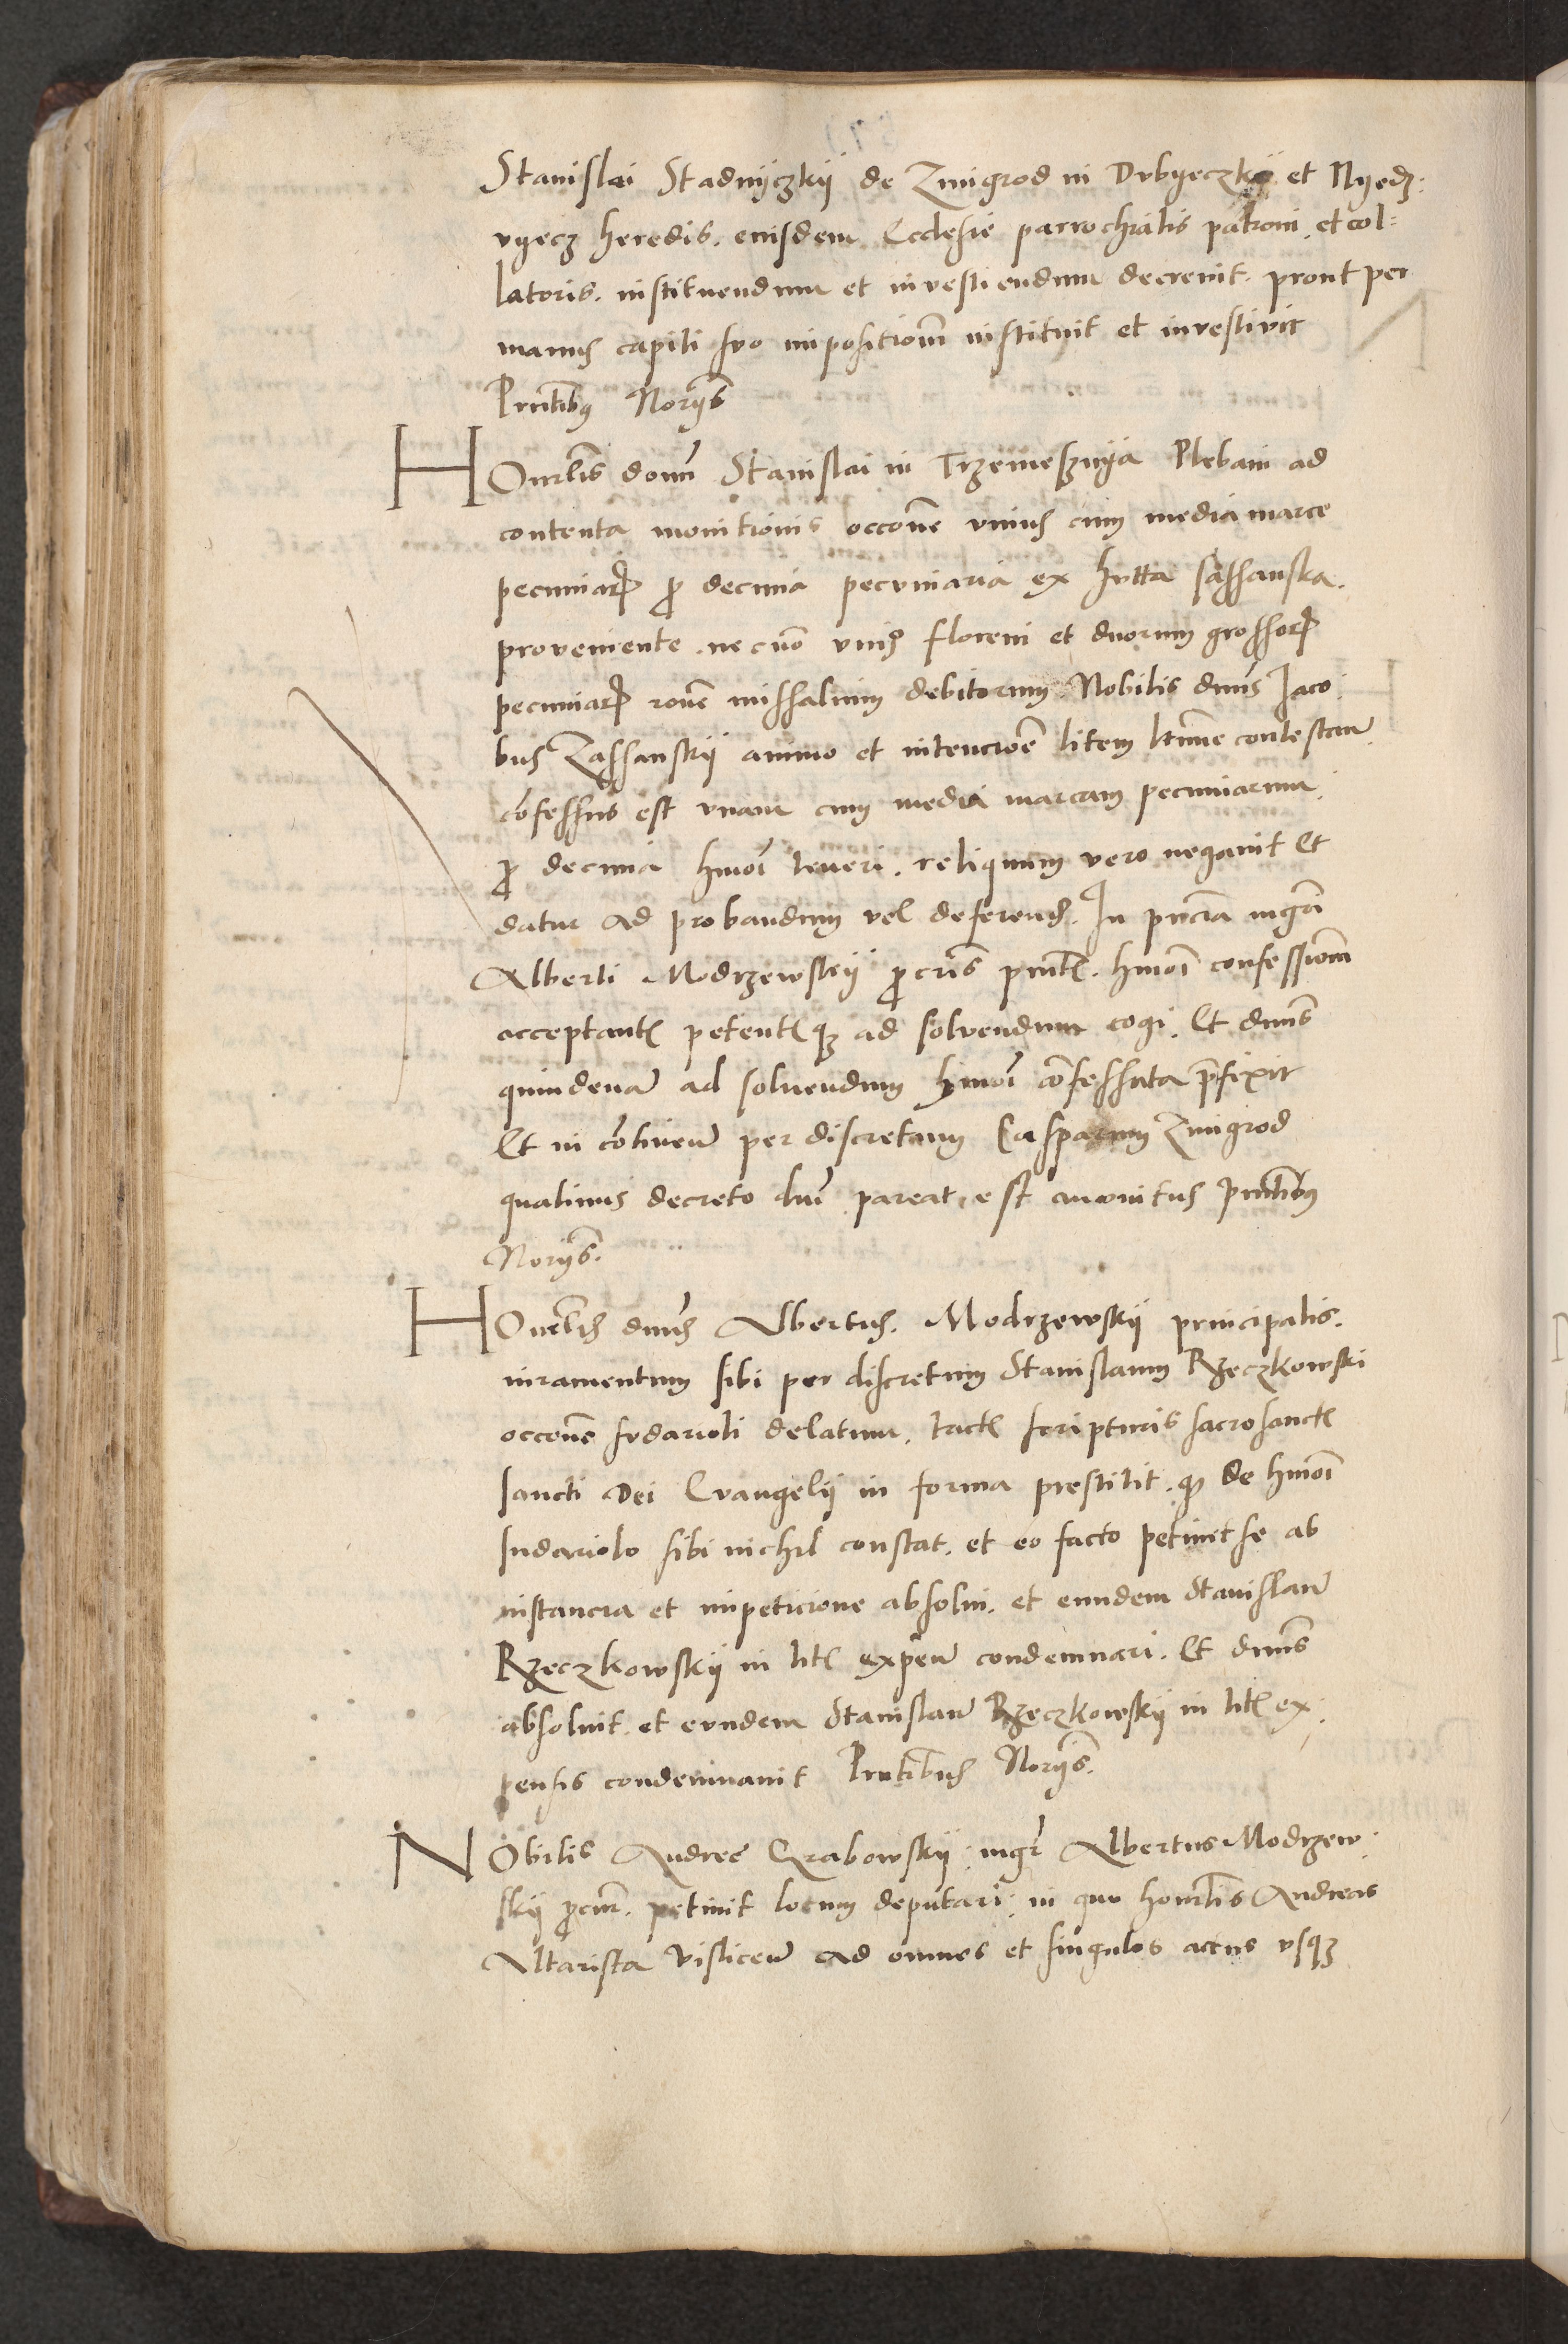 Stanislai Stadnÿczkÿ de Zmigrod in Dvbyeczko et Nyedz:
vyecz heredis. eiusdem Ecclesie parrochialis patroni. et col=
latoris. instituendum et investiendum decrevit. prout per
manus capiti suo impositionem instituit et investivit
Prntibus Noriis
HOnrlis domni Stanislai in Trzemesznya Plebani ad
contenta monitionis occone vnius cum media marce
pecuniar pro decima pecvniaria ex hvtta sassanska.
proveniente. necno vnis floreni et duorum grossor
pecuniar rone missalium debitorum. Nobilis dnus Iaco:
bus Zassanskÿ animo et intencioe litem ltime contestan
cofessus est vnam cum media marcam pecuniarum.
pro decima hmoi teneri. reliquum vero negavit Et
datur ad probandum vel deferend. In pncia mgri
Alberti Modrzewskÿ procris pntis. hmoi confessionem
acceptant petentqz ad solvendum cogi. Et dnus
quindenam ad solvendum hmoi cofessata prefixit
Et in continen per discretum Casparum Zmigrod
quatinus decreto dni pareat, est amonitus prntibus
Noriis.
HOnrlis dnus Albertus. Modrzewskÿ principalis.
iuramentum sibi per discretum Stanislaum Rzeczkowski
occone svdarioli delatum. tact scripturis sacrosanct
sancti Dei Evangelÿ in forma prestitit. qz de hmoi
sudariolo sibi nichil constat. et eo facto petivit se ab
instancia et impeticione absolvi. et eundem Stanislaum
Rzeczkowskÿ in lit expen condemnari. Et dnus
absolvit. et evndem Stanislaum Rzeczkowskÿ in lit ex:
pensis condemnavit Prntibus Noriis.
NObilis Andree Grabowskÿ. mgr Albertus Modrzew:
skÿ procur. petivit locum deputari. in quo honrlis Andreas
Altarista Vislicen ad omnes et singulos actus vsqz